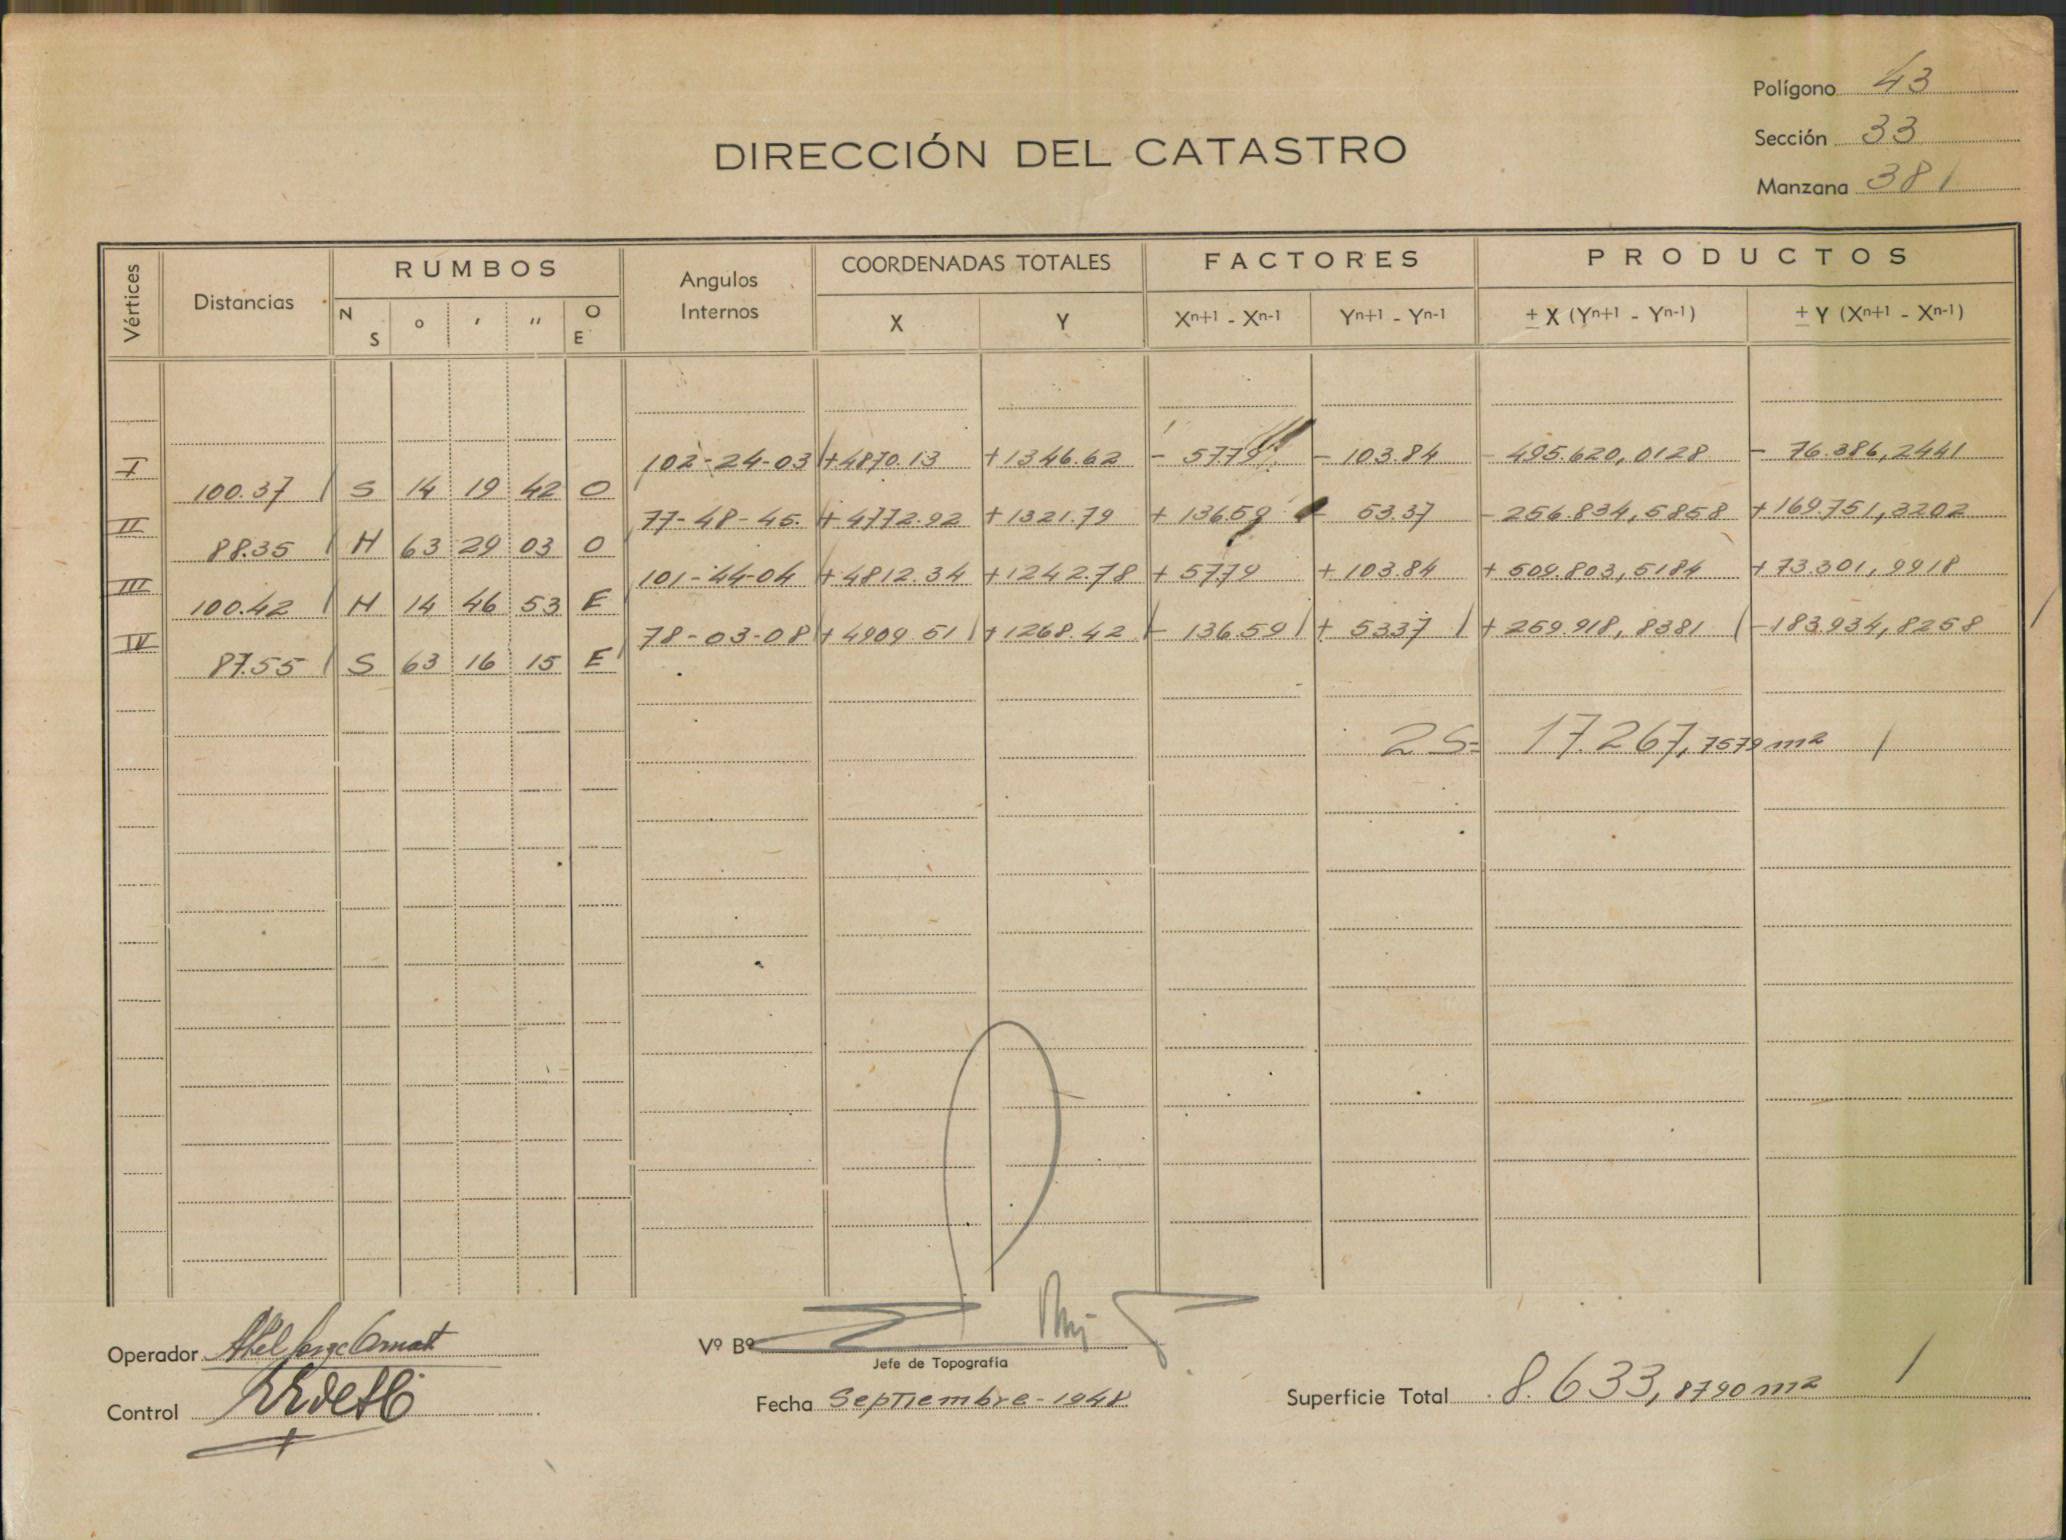 Polígono 43
Sección 33
Manzana 381
DIRECCIÓN DEL CATASTRO
Vértices Distancias RUMBOS Angulos Internos COORDENADAS TOTALES FACTORES PRODUCTOS
N S ° ' '' O E X Y Xⁿ⁺¹ - Xⁿ⁻¹ Yⁿ⁺¹ - Yⁿ⁻¹ ± X (Yⁿ⁺¹ - Yⁿ⁻¹) ± Y (Xⁿ⁺¹ - Xⁿ⁻¹)
I 102-24-03 +4870.13 +1346.62 - 57.79 - 103.84 - 495.620,0128 - 76.386,2441
100.37 S 14 19 42 O
II 77-48-45. +4772.92 +1321.79 + 136.59 53.37 - 256.834,5858 +169.751,3202
88.35 N 63 29 03 O
III 101-44-04 +4812.34 +1242.78 + 57.79 + 103.84 + 509.803,5184 +73.301,9918
100.42 N 14 46 53 E
IV 78-03-08 +4909.51 +1268.42 - 136.59 + 53.37 + 259.918,8381 -183.934,8258
87.55 S 63 16 15 E
2S= 17.267,7579 m²
Operador
Vº Bº
Jefe de Topografía
Control
Fecha Septiembre-1948
Superficie Total 8.633,8790 m²